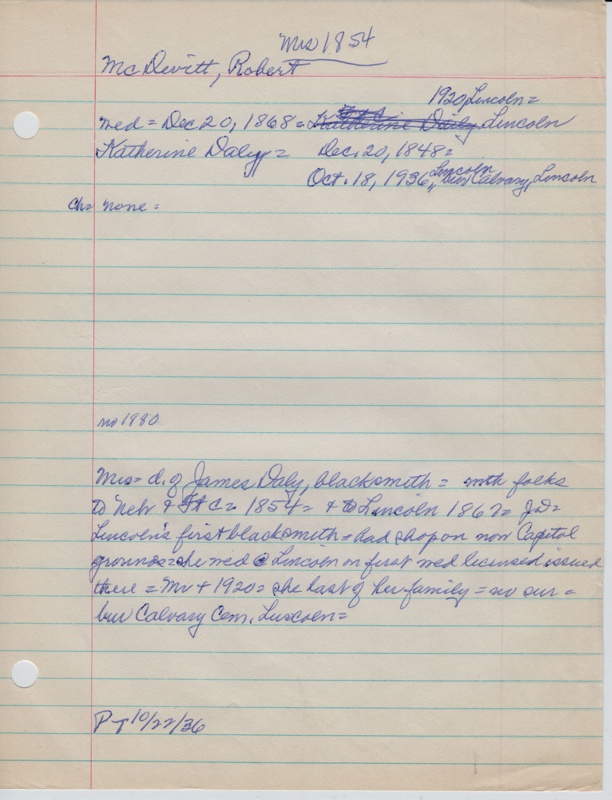 Mrs 1854
McDevitt, Robert
1920, Lincoln =
med = Dec 20, 1868 = Katherine Daily Lincoln
Katherine Daly = Dec. 20, 1848 =
Oct. 18, 1936, Lincoln, bur Calvary, Lincoln
Ch = none =
no 1880
Mrs = d. of James Daly, blacksmith = with folks
to Nebr & = 1854 = & to Lincoln 1867 = JD =
Lincoln's first blacksmith = had shop on now Capitol
grounds = she med @ Lincoln on first med licensed issued
there = Mr + 1920 = she last of her family = no sur =
bur Calvary Cem. Lincoln =
P - 10/22/36